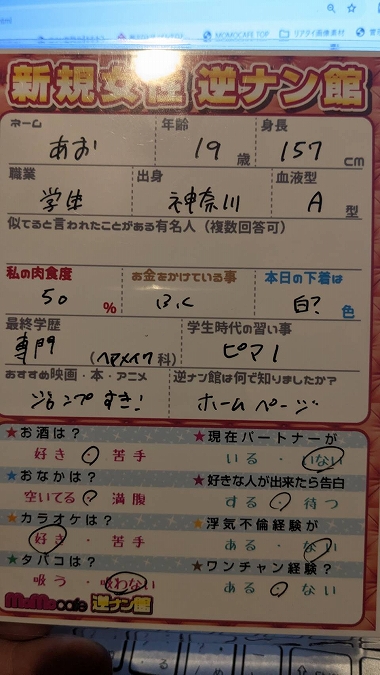 MOMOCAFE TOP
リアタイ画像素材
新規女性 逆ナン館
ネーム
あお
年齢
19 歳
身長
157 cm
職業
学生
出身
神奈川
血液型
A 型
似てると言われたことがある有名人(複数回答可)
私の肉食度
50 %
お金をかけている事
ふく
本日の下着は
白? 色
最終学歴
専門
(ヘアメイク科)
学生時代の習い事
ピアノ
おすすめ映画・本・アニメ
ジャンプすき!
逆ナン館は何で知りましたか?
ホームページ
★お酒は?
好き・苦手
★現在パートナーが
いる・いない
★おなかは?
空いてる・満腹
★好きな人が出来たら告白
する・待つ
★カラオケは?
好き・苦手
★浮気不倫経験が
ある・ない
★タバコは?
吸う・吸わない
★ワンチャン経験?
ある・ない
MoMo cafe 逆ナン館